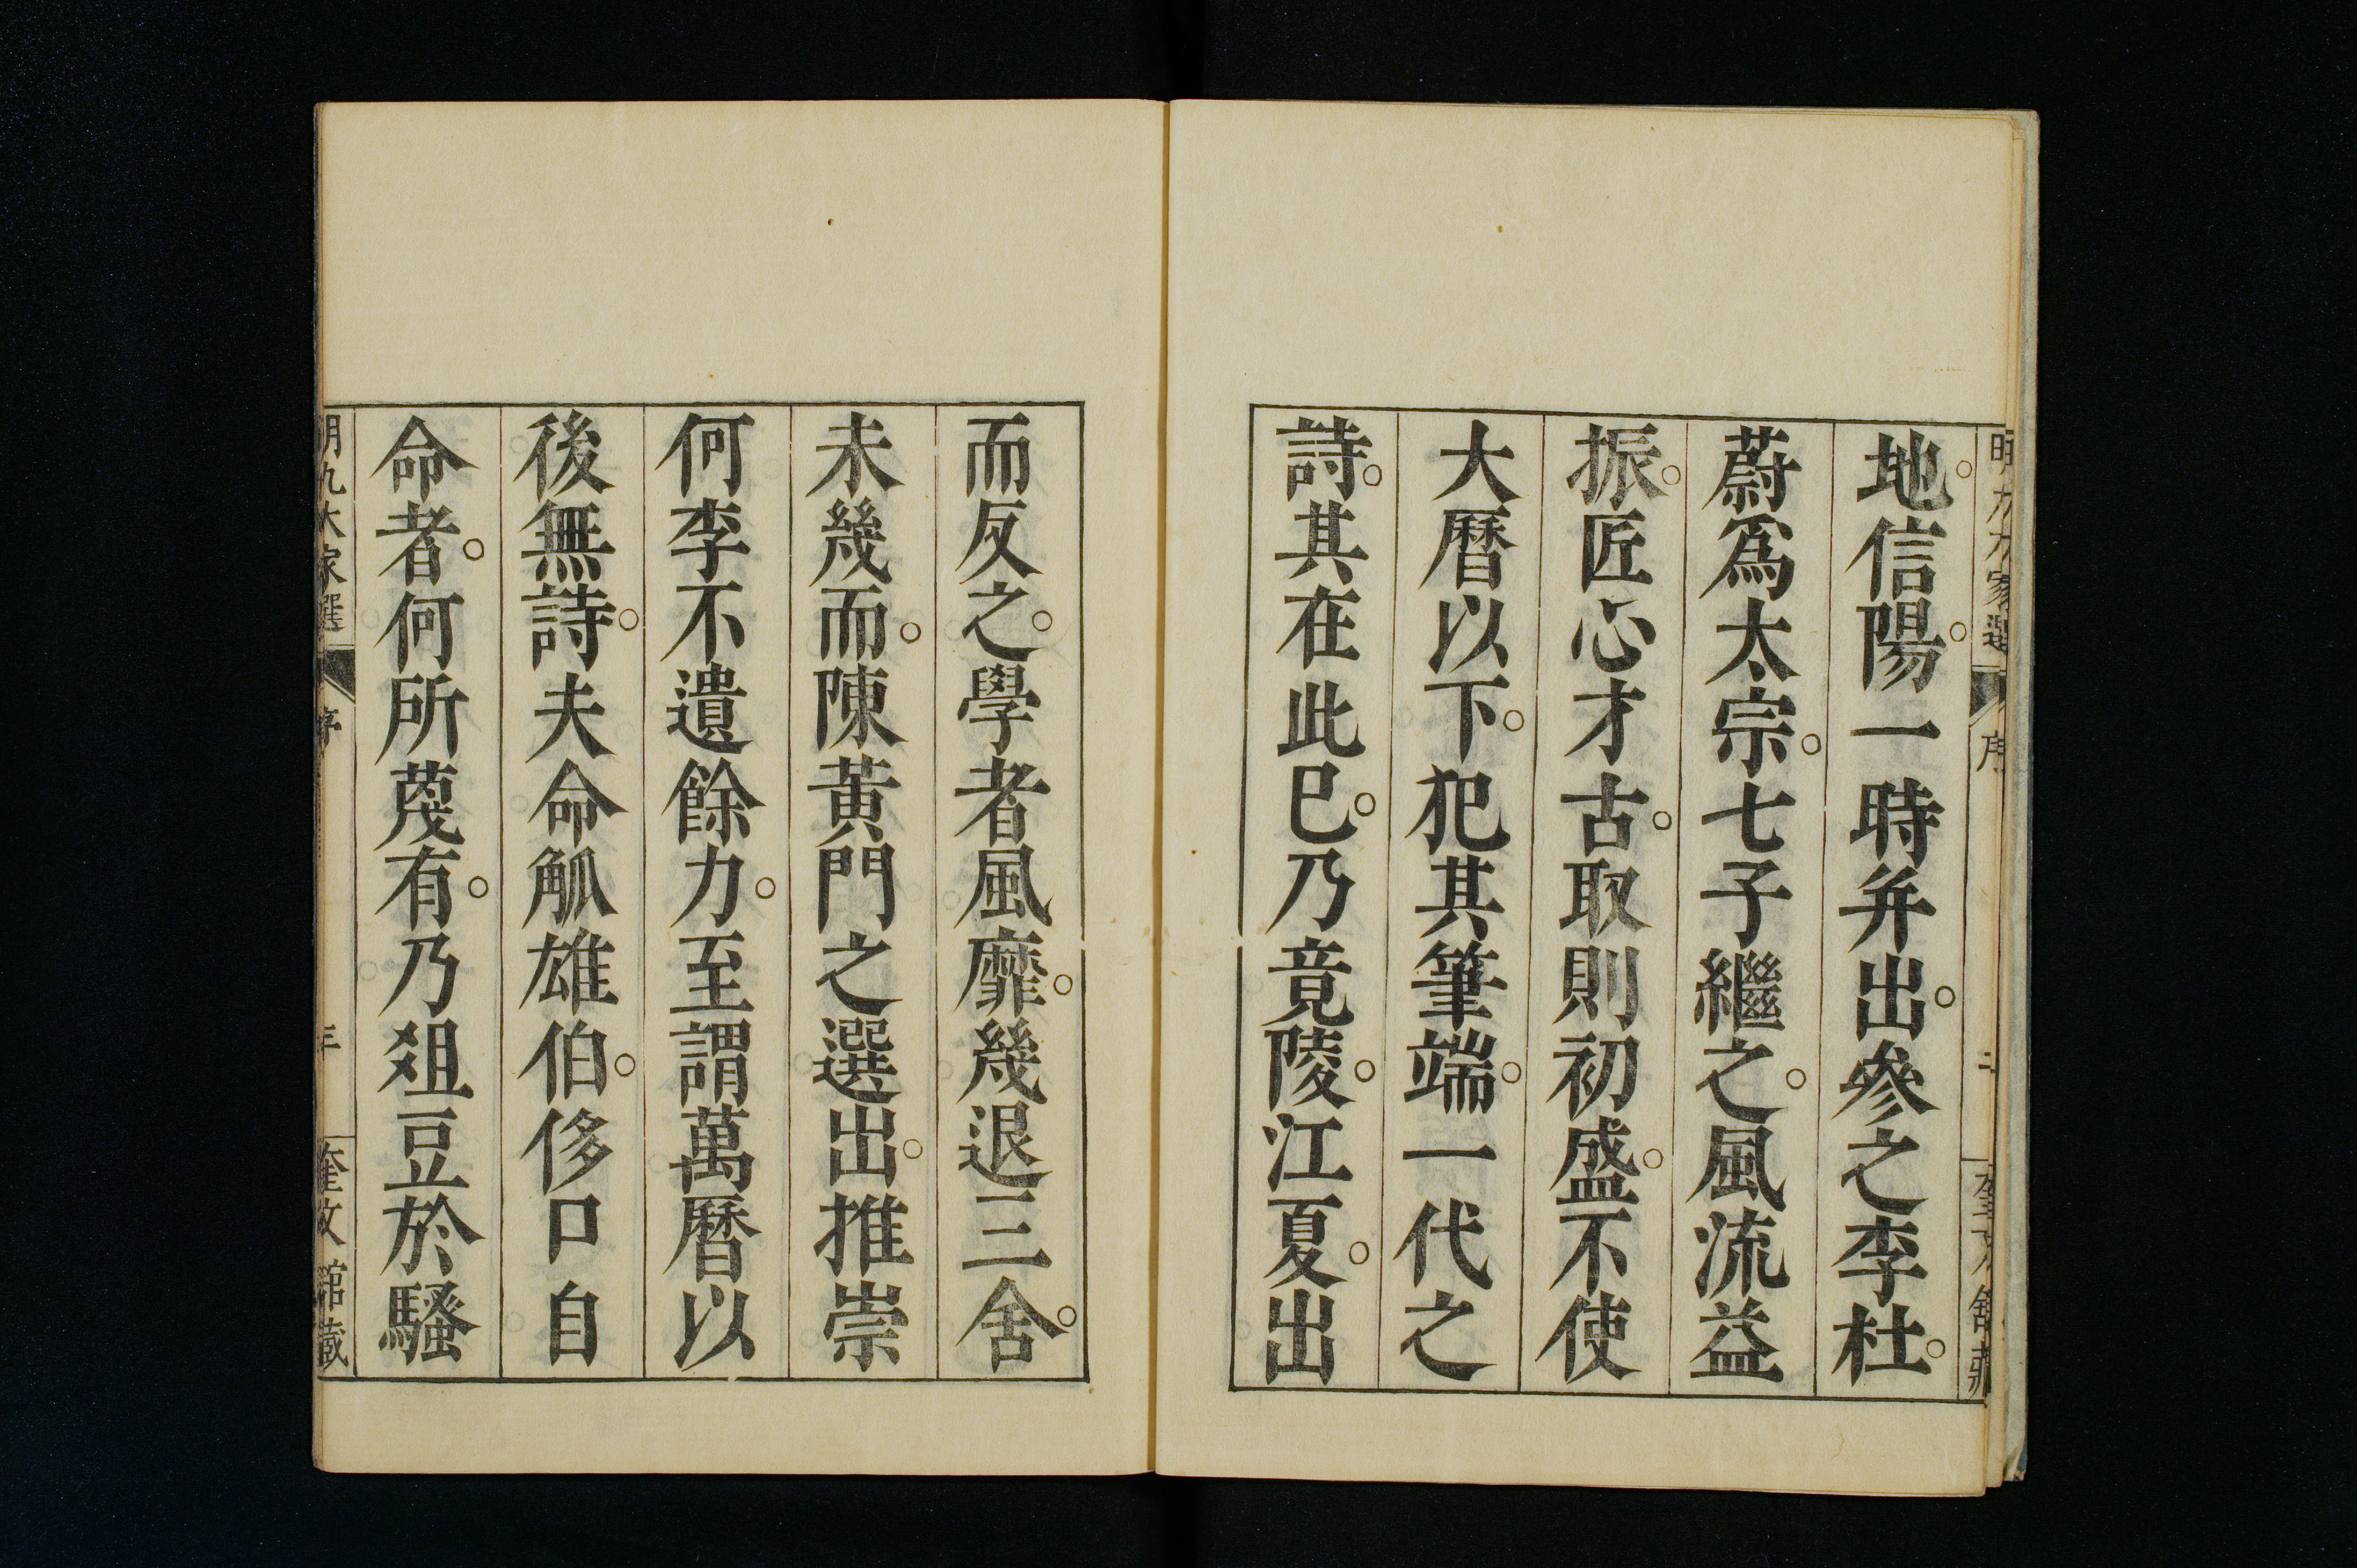 地。信陽。一時并出。參之李杜。
蔚爲太宗。七子繼之。風流益
振。匠心才古。取則初盛。不使
大曆以下。犯其筆端。一代之
詩。其在此巳。乃竟陵。江夏。出
而反之。學者風靡。幾退三舍。
未幾而。陳黃門之選出。推崇
何李不遺餘力。至謂萬曆以
後無詩。夫命觚雄伯。侈口自
命者。何所蔑有。乃爼豆於騷
明九大家選 序 三 奎文館藏